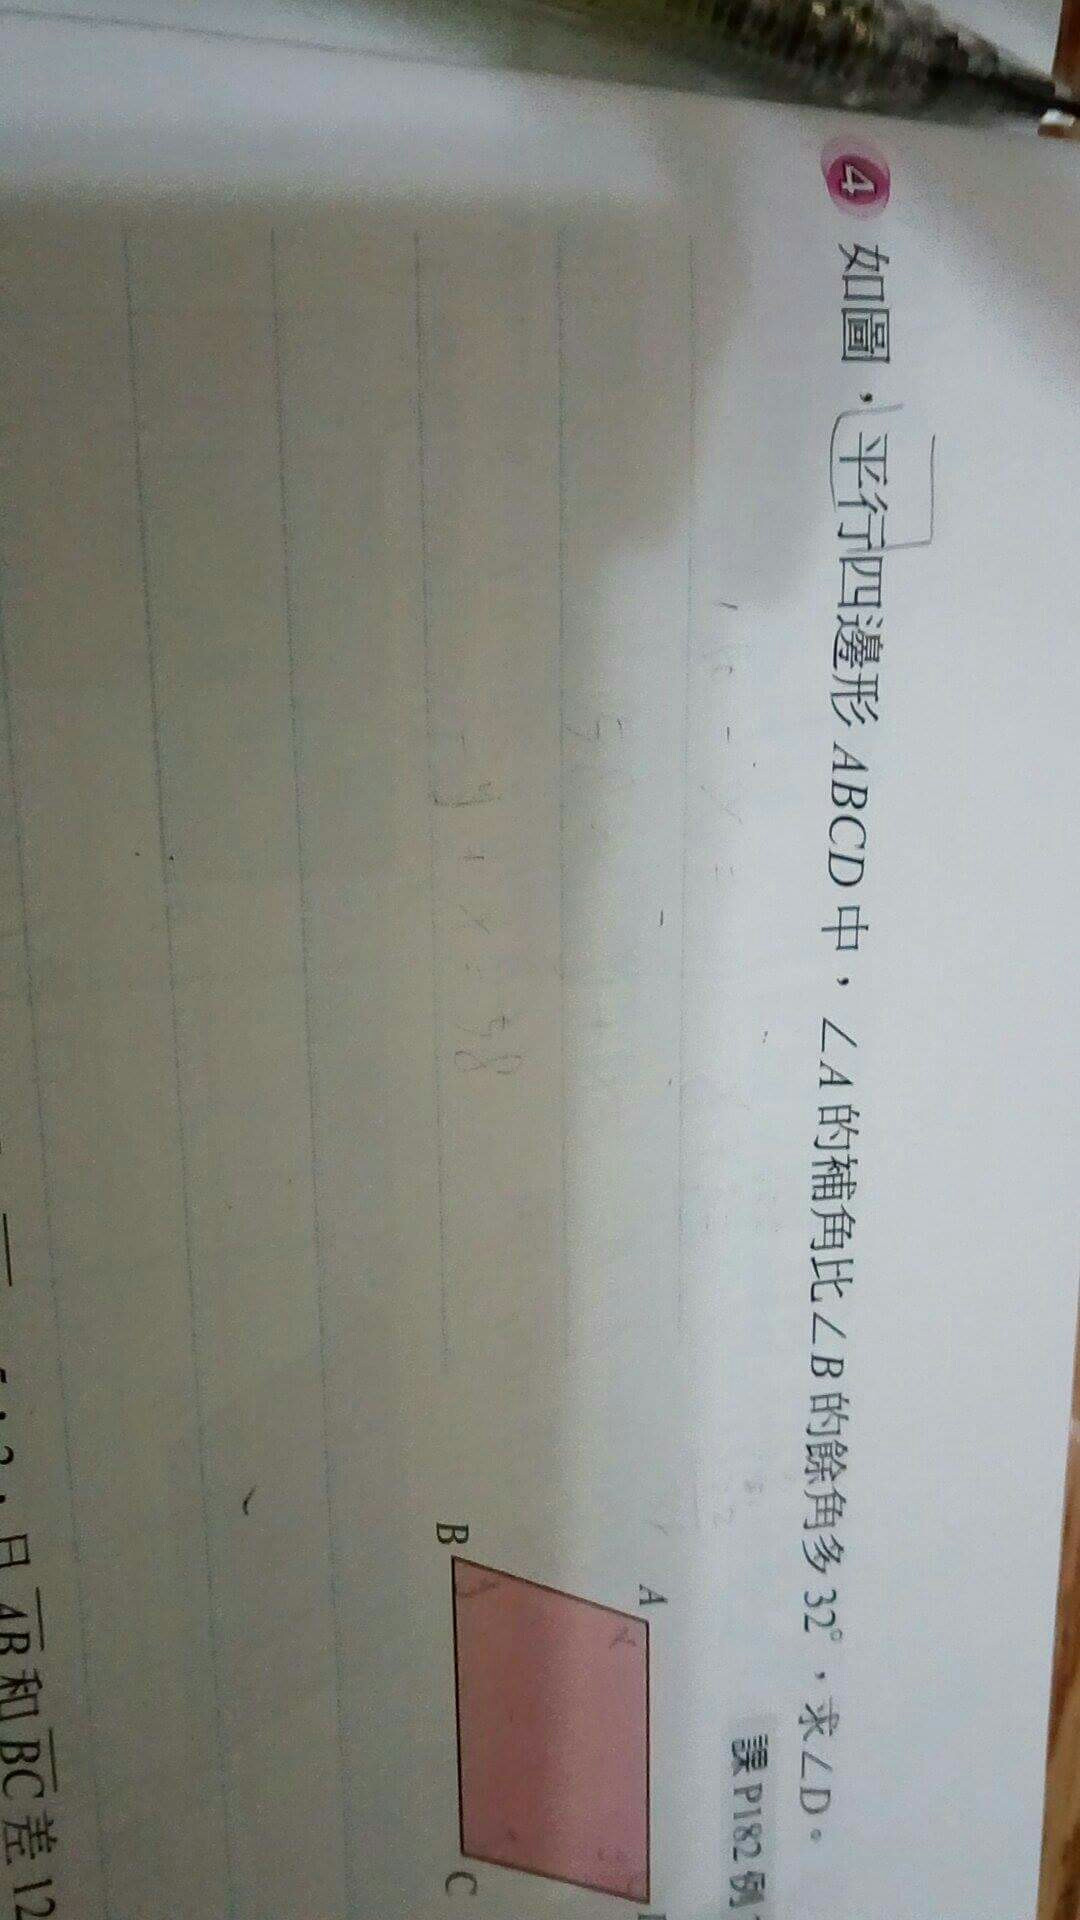 4 如圖，平行四邊形 ABCD 中，∠A 的補角比∠B 的餘角多 32°，求∠D。
課P182 例
A
B
C
x
y
-y+x=-38
且 AB 和 BC 差 12